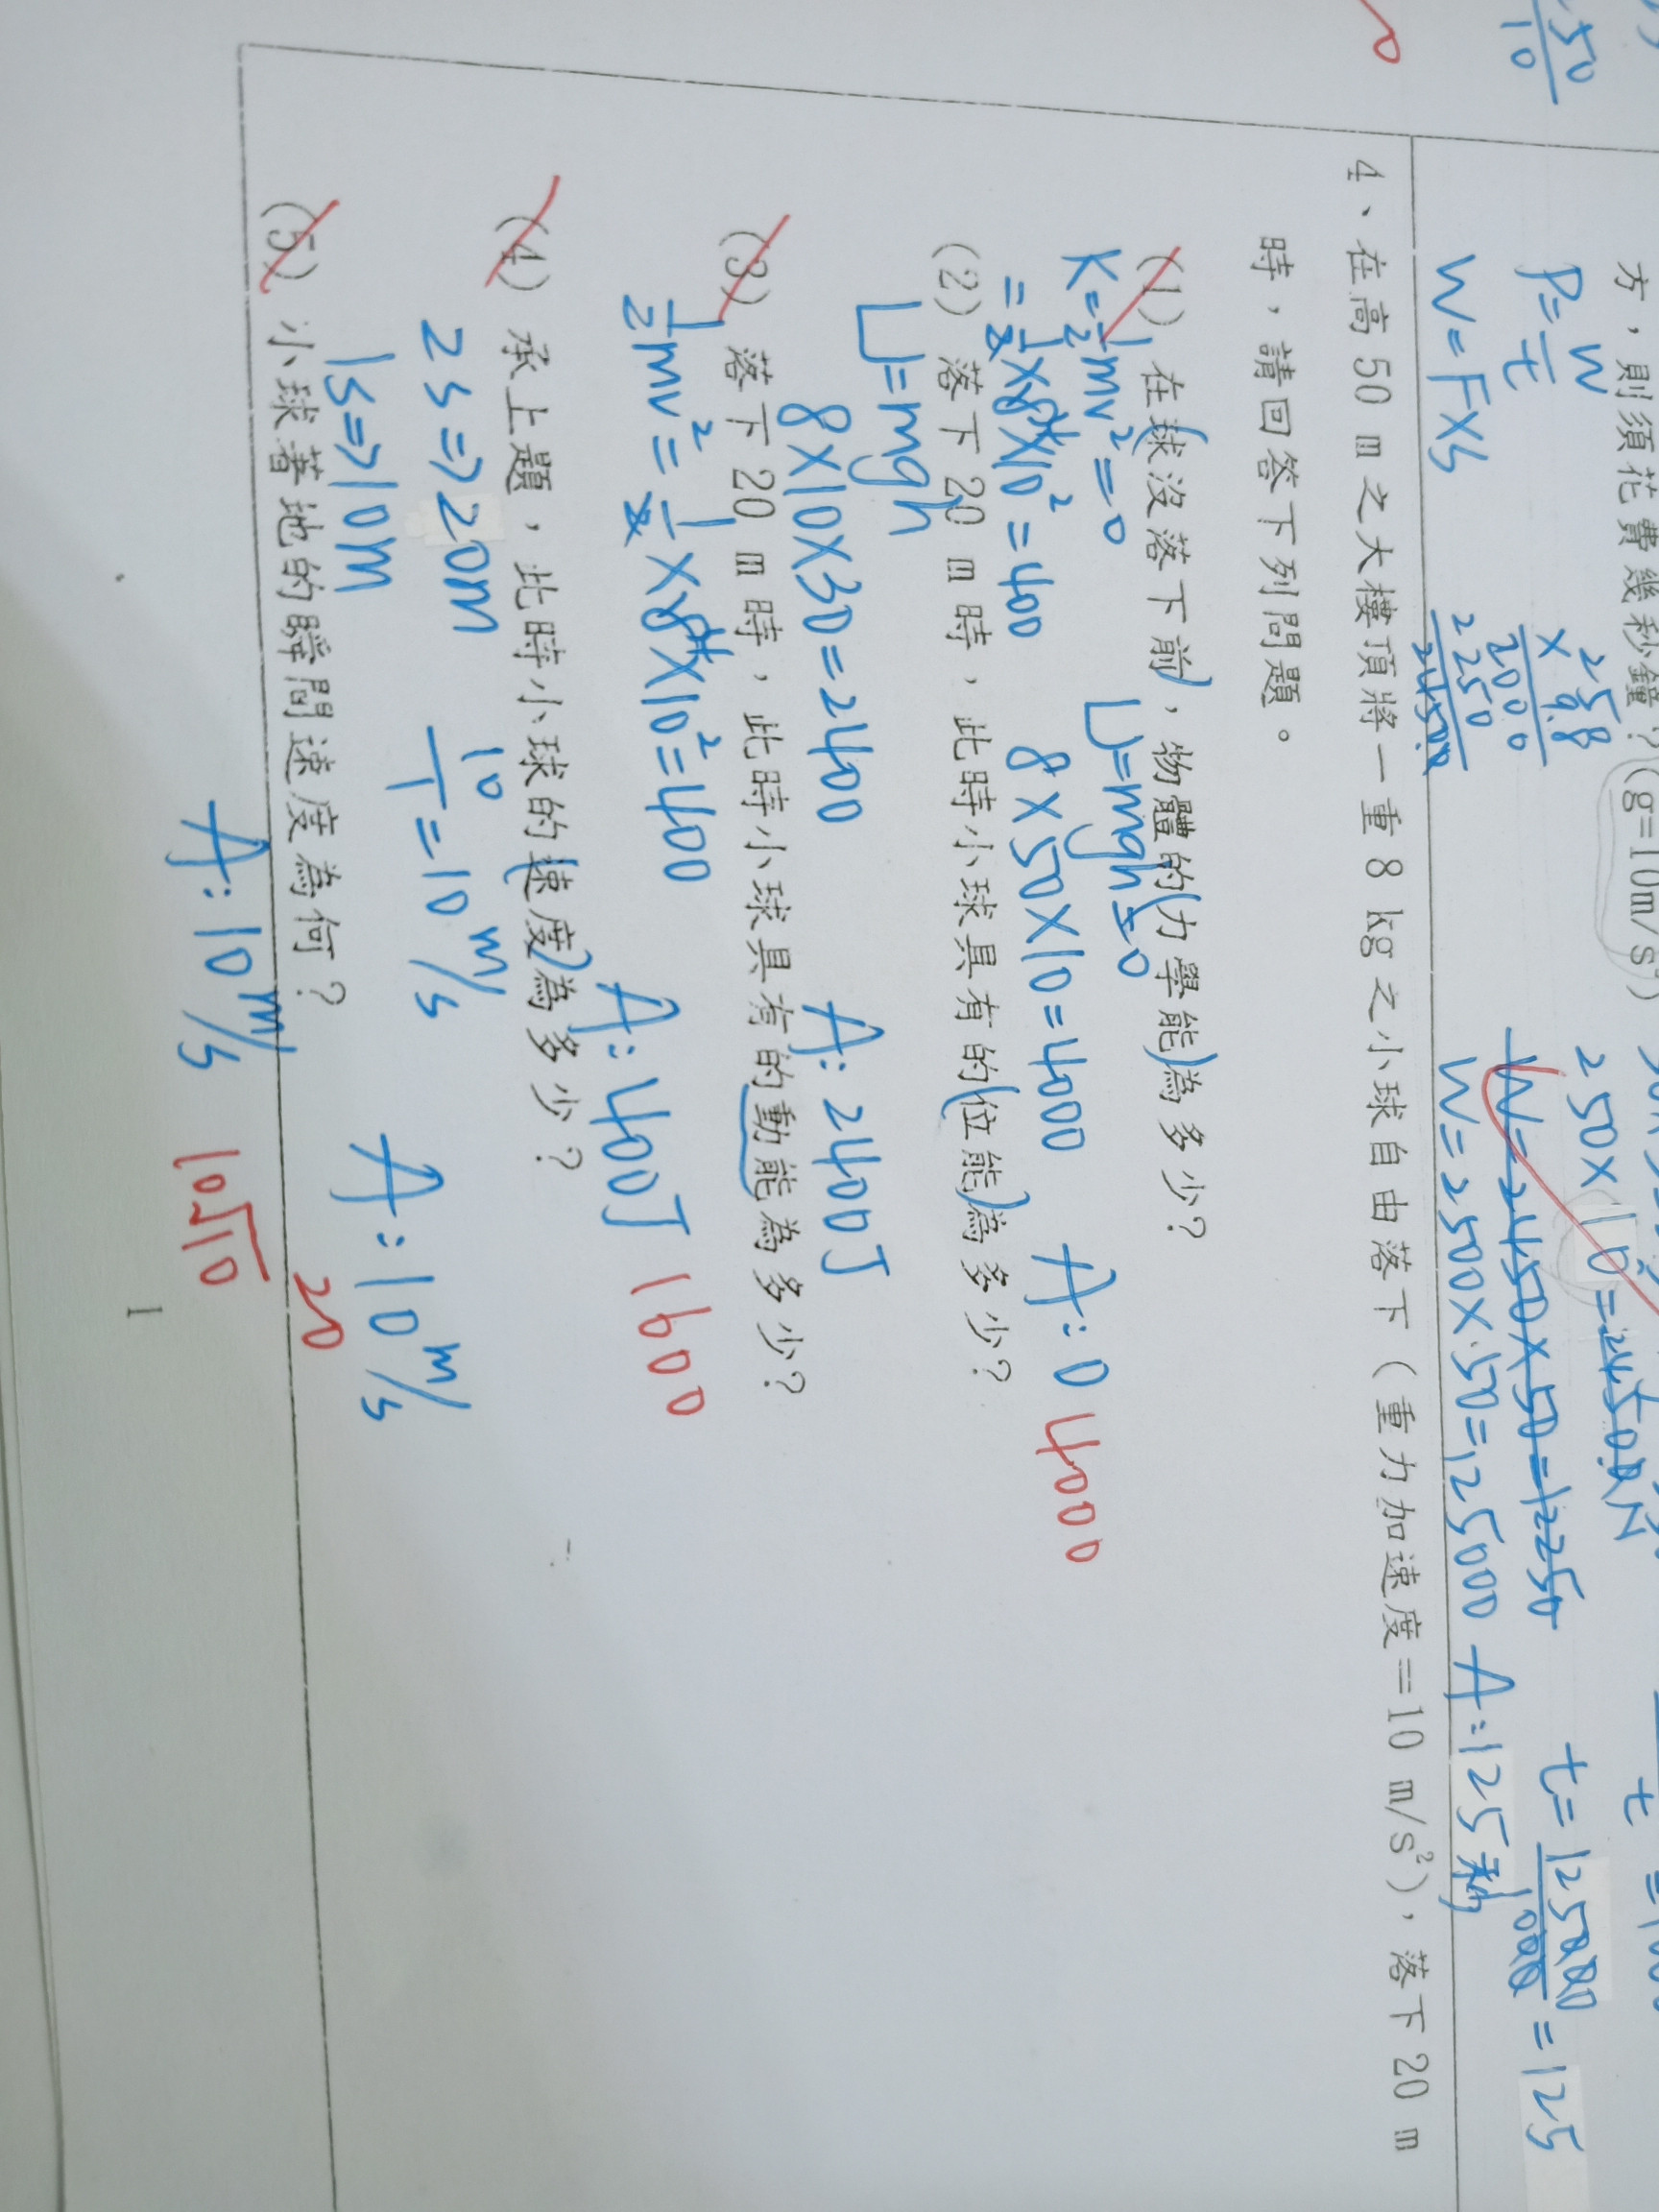 50
10
方，則須花費幾秒鐘？(g=10m/s²)
250×10=2450.0N
P=W/t
258
×9.8
2000
2250
24500
W=2450×50=12250
t=125000/1000=125
W=F×S
W=2500×50=125000 A:125秒
4、在高 50 m 之大樓頂將一重 8 kg 之小球自由落下（重力加速度＝10 m/s²），落下 20 m
時，請回答下列問題。
(1) 在球沒落下前，物體的力學能為多少？
K=½mv²=0 U=mgh=0
=½×8×10²=400 8×50×10=4000 A:0 4000
(2) 落下 20 m 時，此時小球具有的位能為多少？
U=mgh
8×10×30=2400 A:2400J
(3) 落下 20 m 時，此時小球具有的動能為多少？
½mv²=½×8×10²=400 A:400J 1600
(4) 承上題，此時小球的速度為多少？
2s=>20m 10/1=10m/s A:10m/s
1s=>10m 20
(5) 小球著地的瞬間速度為何？
A:10m/s 10√10
1